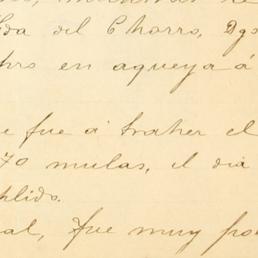 da del Chorro, Dgo
hrs en aqueya á
e fue á traher el
70 mulas, el dia
plido.
al, fue muy po